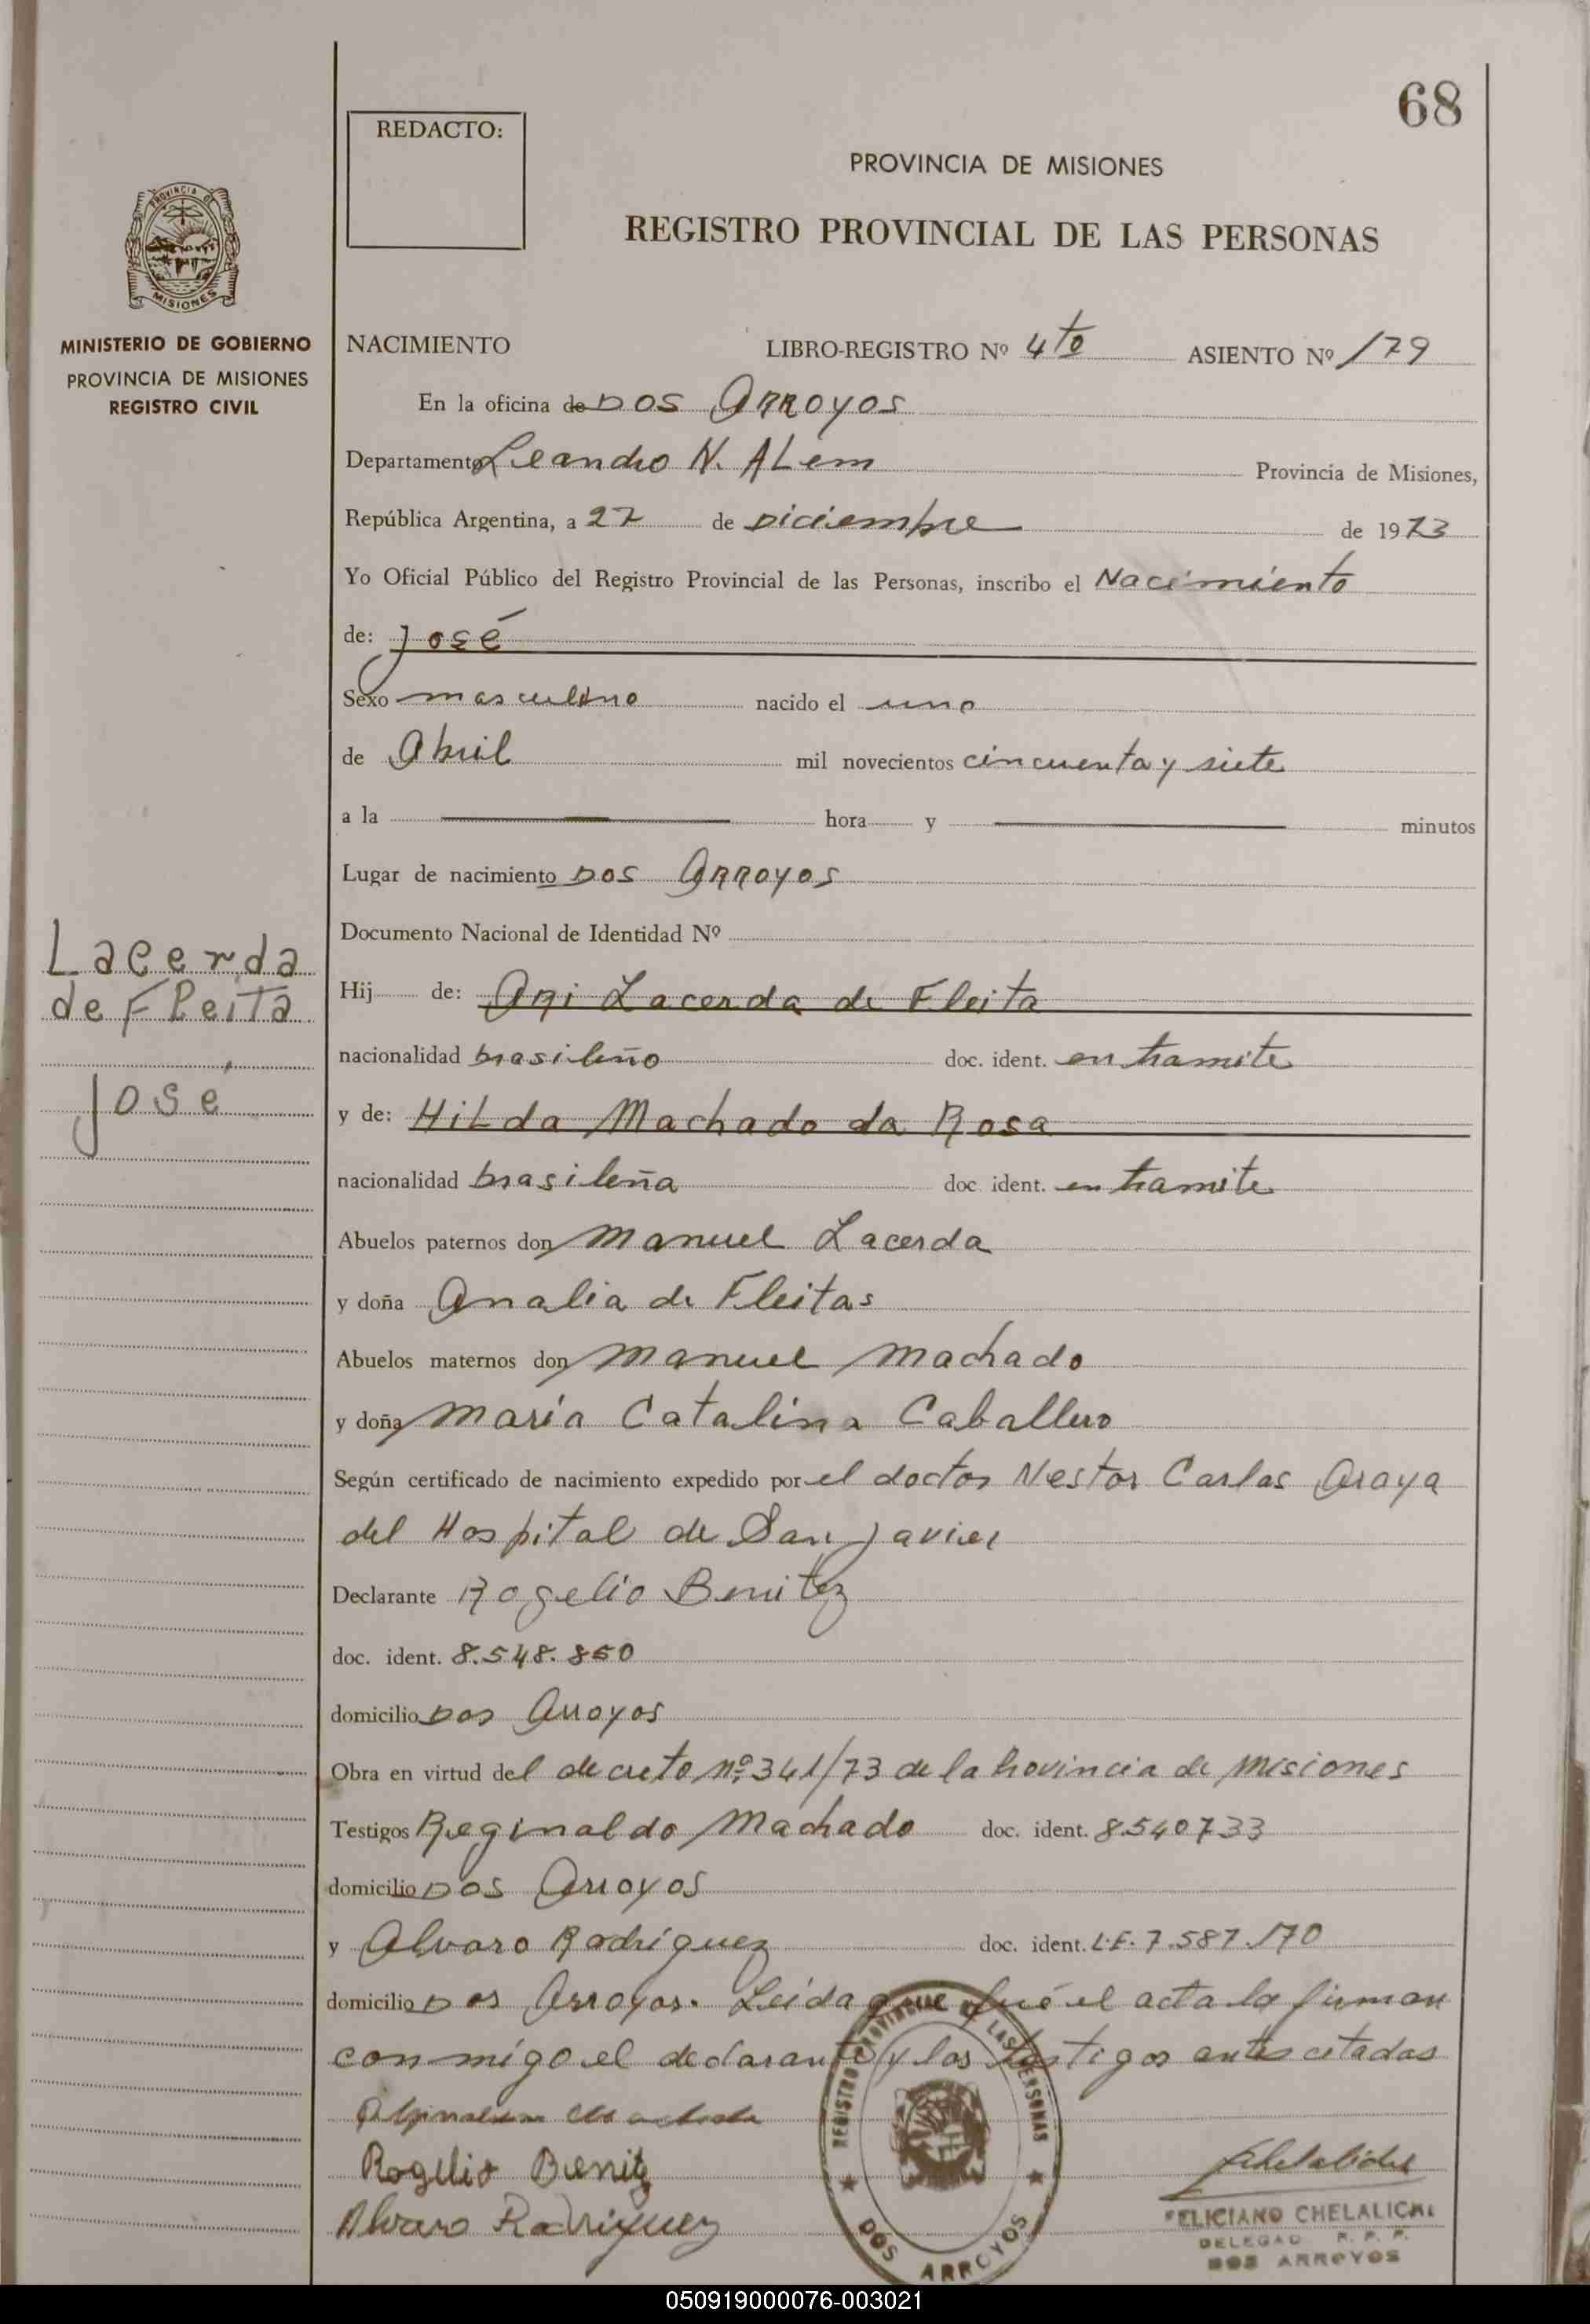 68
REDACTO:
PROVINCIA DE MISIONES
REGISTRO PROVINCIAL DE LAS PERSONAS
PROVINCIA DE
MISIONES
MINISTERIO DE GOBIERNO
PROVINCIA DE MISIONES
REGISTRO CIVIL
NACIMIENTO LIBRO-REGISTRO Nº 4to ASIENTO Nº 179
En la oficina de DOS ARROYOS
Departamento Leandro N. ALem Provincia de Misiones,
República Argentina, a 27 de Diciembre de 1973
Yo Oficial Público del Registro Provincial de las Personas, inscribo el Nacimiento
de: José
Sexo masculino nacido el uno
de Abril mil novecientos cincuenta y siete
a la hora y minutos
Lugar de nacimiento DOS ARROYOS
Documento Nacional de Identidad Nº
Lacerda
de FLeita
José
Hij de: Ari Lacerda de Fleita
nacionalidad brasileño doc. ident. en tramite
y de: HiLda Machado da Rosa
nacionalidad brasileña doc. ident. en tramite
Abuelos paternos don Manuel Lacerda
y doña Analia de Fleitas
Abuelos maternos don Manuel Machado
y doña María Catalina Caballero
Según certificado de nacimiento expedido por el doctor Nestor Carlos Araya
del Hospital de San Javier
Declarante Rogelio Benitez
doc. ident. 8.548.850
domicilio Dos Arroyos
Obra en virtud del decreto nº 341/73 de la Provincia de Misiones
Testigos Reginaldo Machado doc. ident. 8540733
domicilio DOS Arroyos
y Alvaro Rodríguez doc. ident. L.E. 7.587.170
domicilio Dos Arroyos. Leida que fué el acta la firman
conmigo el declarante y los testigos antes citados
Rogelio Benitz
Alvaro Rodriguez
REGISTRO PROVINCIAL DE LAS PERSONAS
DOS ARROYOS
FELICIANO CHELALICHE
DELEGADO R. P. P.
DOS ARROYOS
050919000076-003021